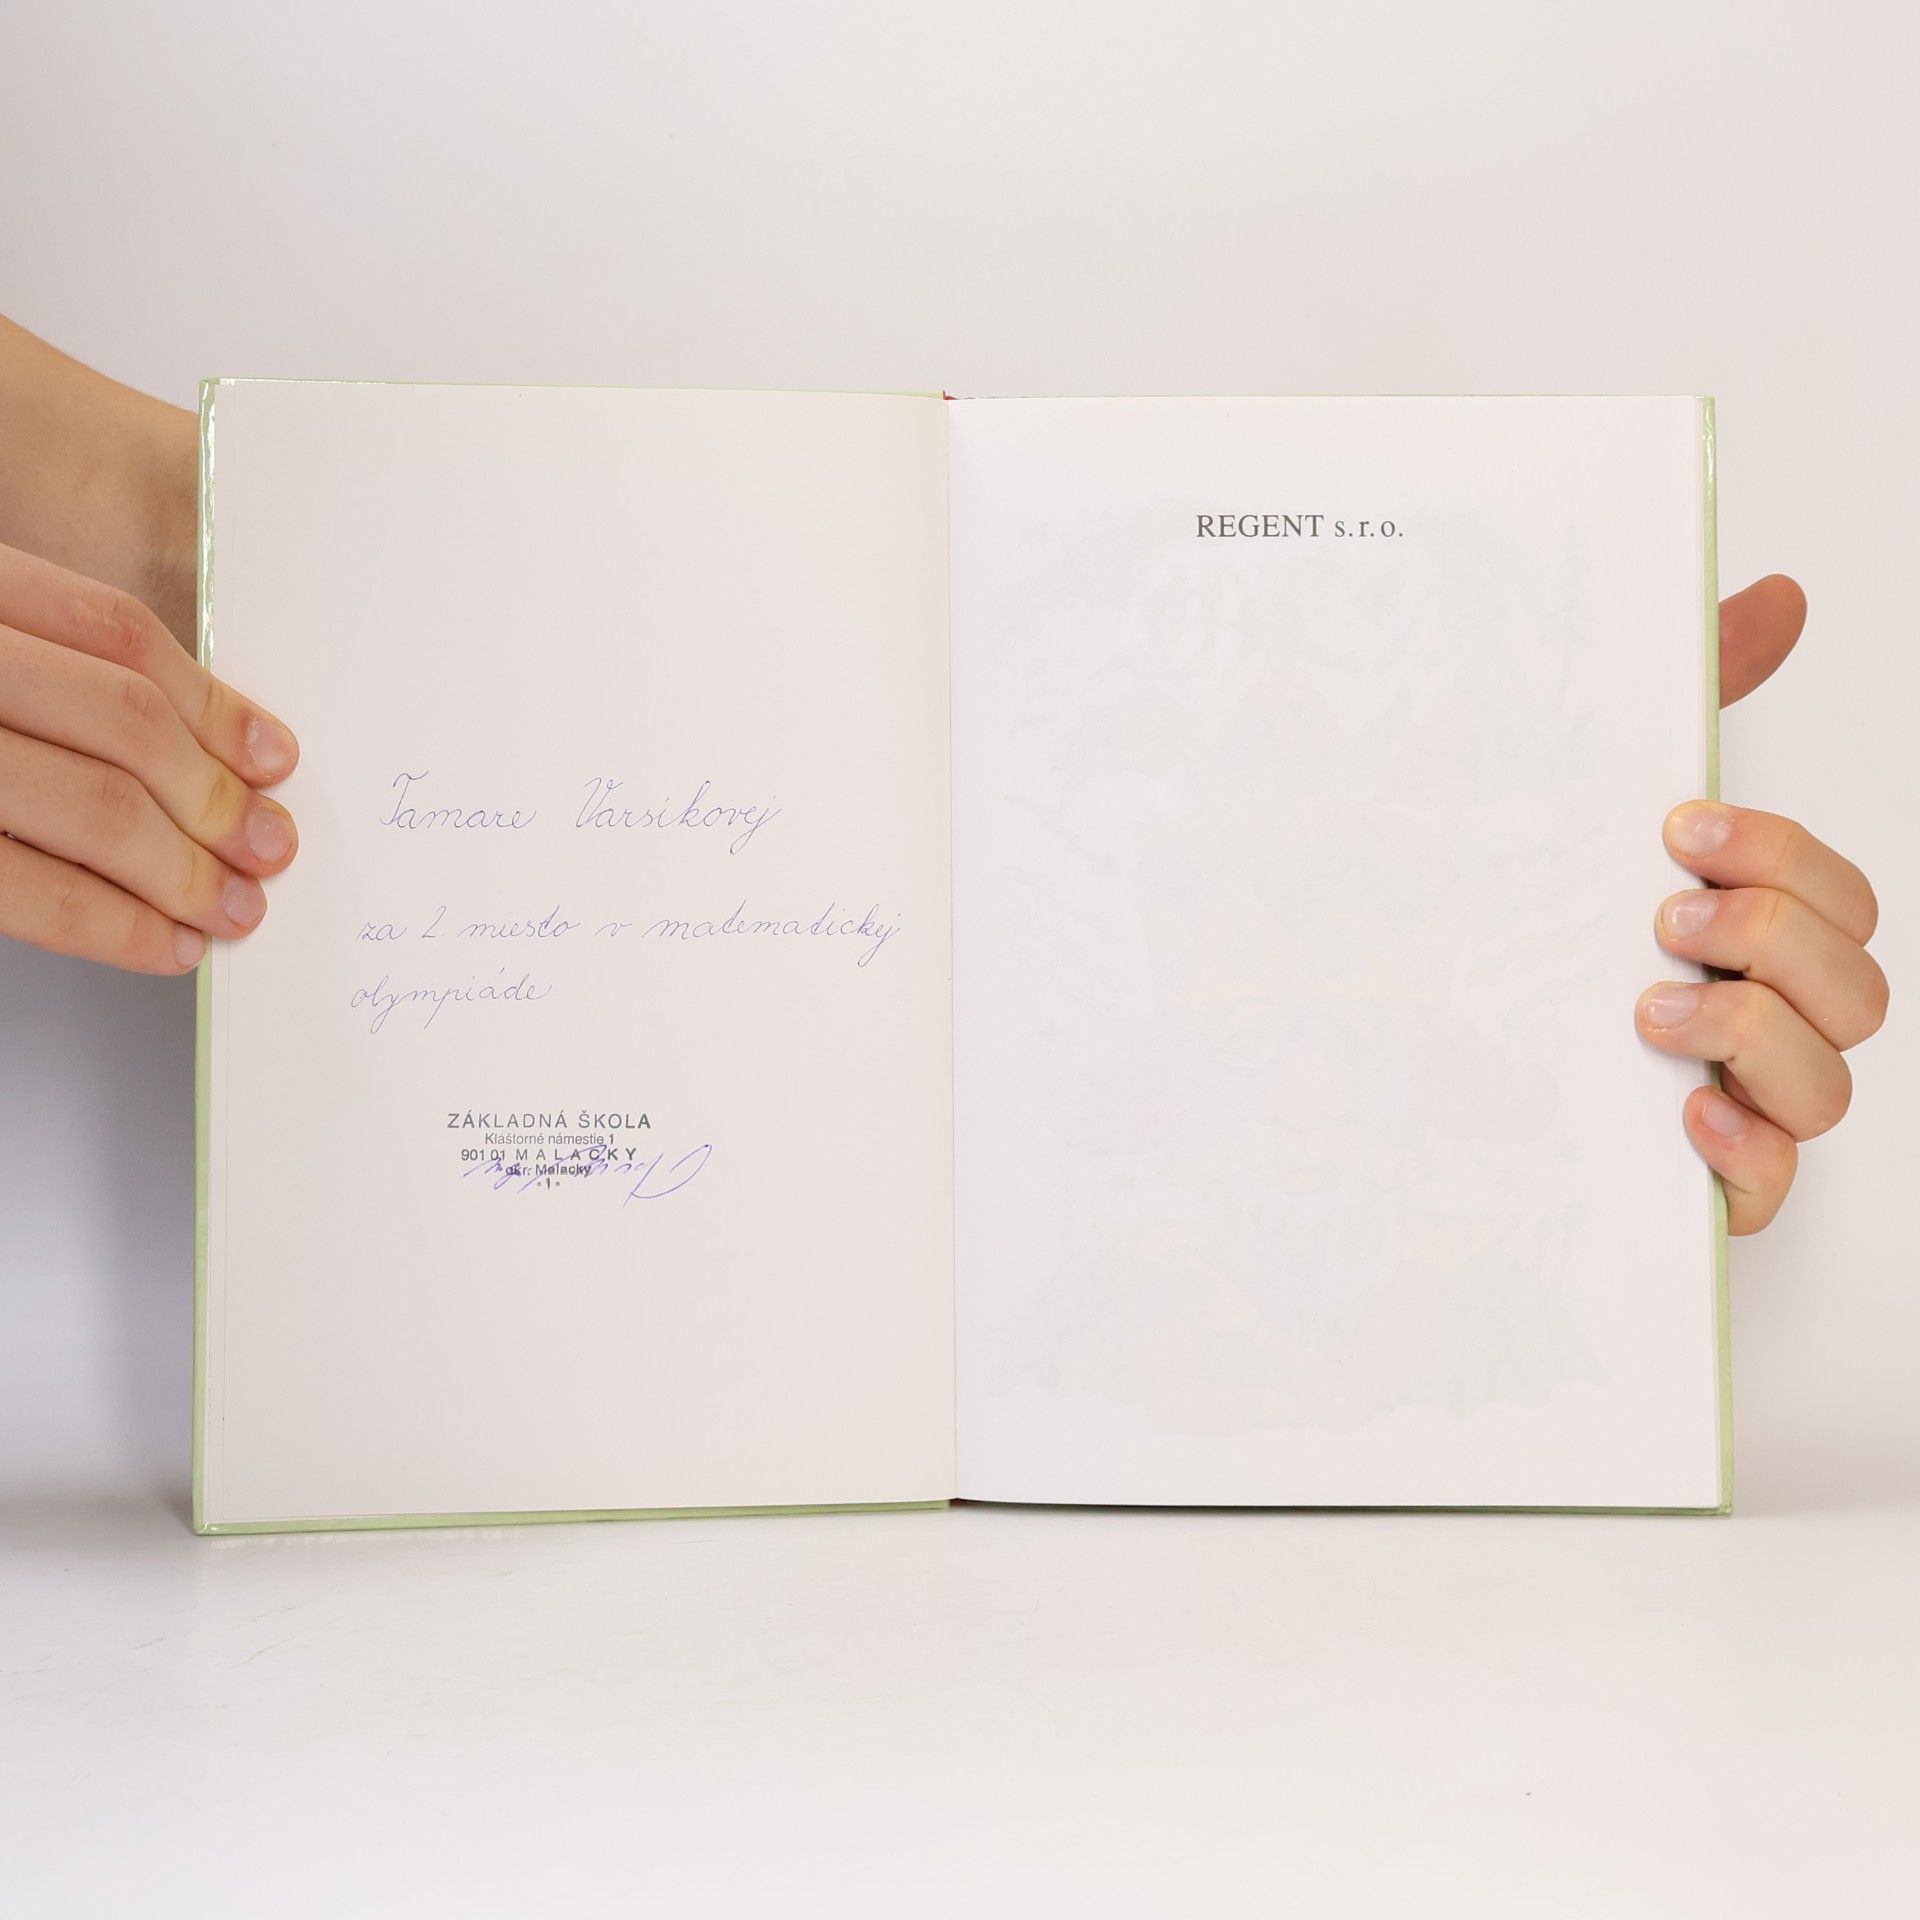 Tamare Varsikovej
za 2. miesto v matematickej
olympiáde
ZÁKLADNÁ ŠKOLA
Kláštorné námestie 1
901 01 MALACKY
okr. Malacky
- 1 -
REGENT s.r.o.